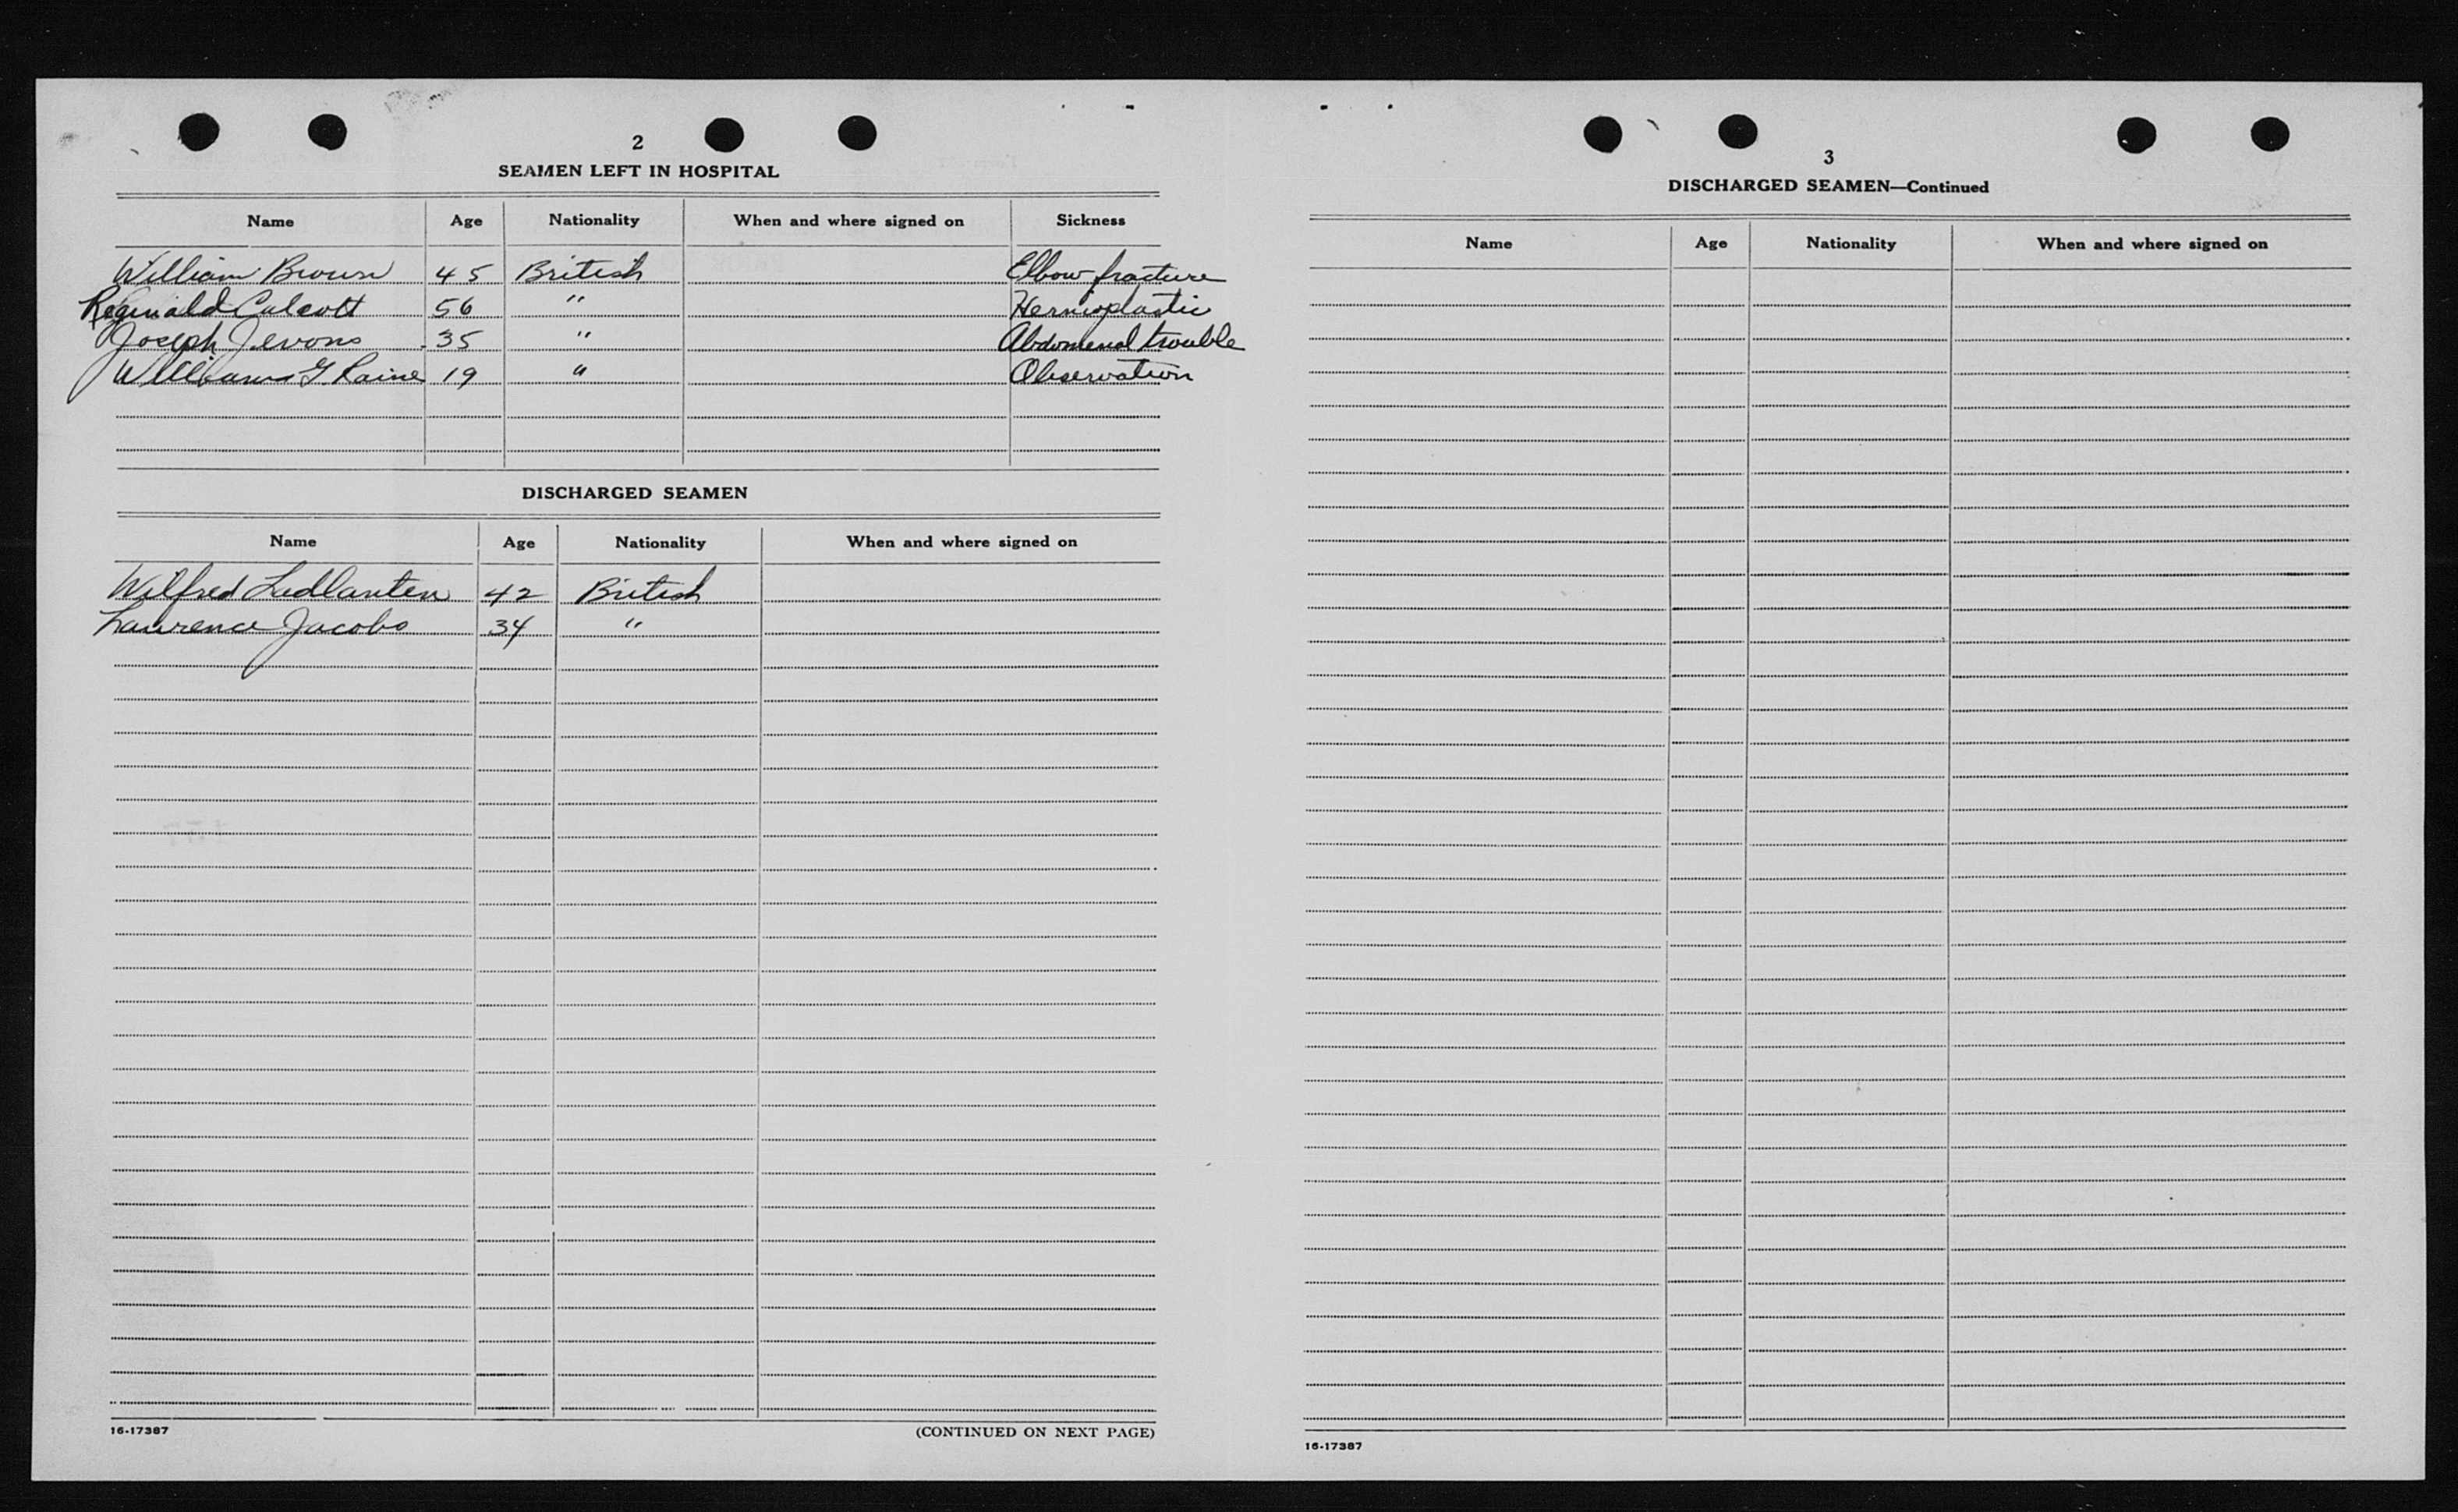 2
SEAMEN LEFT IN HOSPITAL
Name Age Nationality When and where signed on Sickness
William Brown 45 British Elbow fracture
Reginald Calcott 56 " Hernioplastic
Joseph Jevons 35 " Abdomenal trouble
William G Raine 19 " Observation
DISCHARGED SEAMEN
Name Age Nationality When and where signed on
Wilfred 42 British
Laurence Jacobs 34 "
16-17387 (CONTINUED ON NEXT PAGE)
3
DISCHARGED SEAMEN—Continued
Name Age Nationality When and where signed on
16-17387